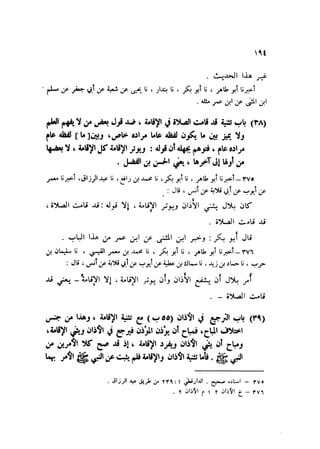 ١٩٤
غير هذا الحديث .
أخبرنا أبو طاهر ، نا أبو بكر ، نا بندار ، نا يحيى عن شعبة عن أبي جعفر عن مسلم
ابن المثنى عن ابن عمر مثله .
(٣٨) باب تثنية قد قامت الصلاة في الإقامة ، ضد قول بعض من لا يفهم العلم
ولا يميز بين ما يكون لفظه عاما مراده خاص، وبين [ ما ] لفظه عام
مراده عام ، فتوهم بجهله أن قوله : ويوتر الإقامة كل الإقامة ، لا بعضها
من أولها إلى آخرها ، يعني الحسن بن الفضل .
٣٧٥ – أخبرنا أبو طاهر ، نا أبو بكر ، نا محمد بن رافع ، نا عبد الرزاق، أخبرنا معمر
عن أيوب عن أبي قلابة عن أنس ، قال :
كان بلال يثني الأذان ويوتر الإقامة ، إلا قوله : قد قامت الصلاة ،
قد قامت الصلاة .
قال أبو بكر : وخبر ابن المثنى عن ابن عمر من هذا الباب .
٣٧٦ – أخبرنا أبو طاهر ، نا أبو بكر ، نا محمد بن معمر القيسي ، نا سليمان بن
حرب ، نا حماد بن زيد ، نا سماك بن عطية عن أيوب عن أبي قلابة عن أنس ، قال :
أمر بلال أن يشفع الأذان وأن يوتر الإقامة ، إلا الإقامة – يعني قد
قامت الصلاة – .
(٣٩) باب الترجيع في الأذان (٥٥ ب) مع تثنية الإقامة ، وهذا من جنس
اختلاف المباح، فمباح أن يؤذن المؤذن فيرجع في الأذان ويثني الإقامة،
ومباح أن يثني الأذان ويفرد الإقامة ، إذ قد صح كلا الأمرين من
النبي ﷺ . فأما تثنية الأذان والإقامة فلم يثبت عن النبي ﷺ الأمر بهما
٣٧٥ – اسناده صحيح . الدارقطني ١ : ٢٣٩ من طريق عبد الرزاق .
٣٧٦ – خ الأذان ٢ ؛ م الأذان ٢ .